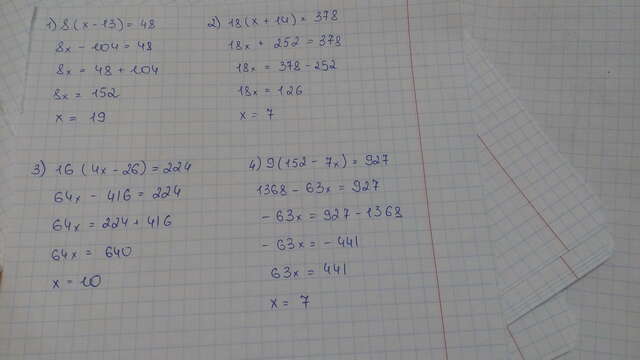 1) 8(x-13) = 48
8x - 104 = 48
8x = 48 + 104
8x = 152
x = 19
2) 18(x + 14) = 378
18x + 252 = 378
18x = 378 - 252
18x = 126
x = 7
3) 16 (4x - 26) = 224
64x - 416 = 224
64x = 224 + 416
64x = 640
x = 10
4) 9(152 - 7x) = 927
1368 - 63x = 927
- 63x = 927 - 1368
- 63x = - 441
63x = 441
x = 7